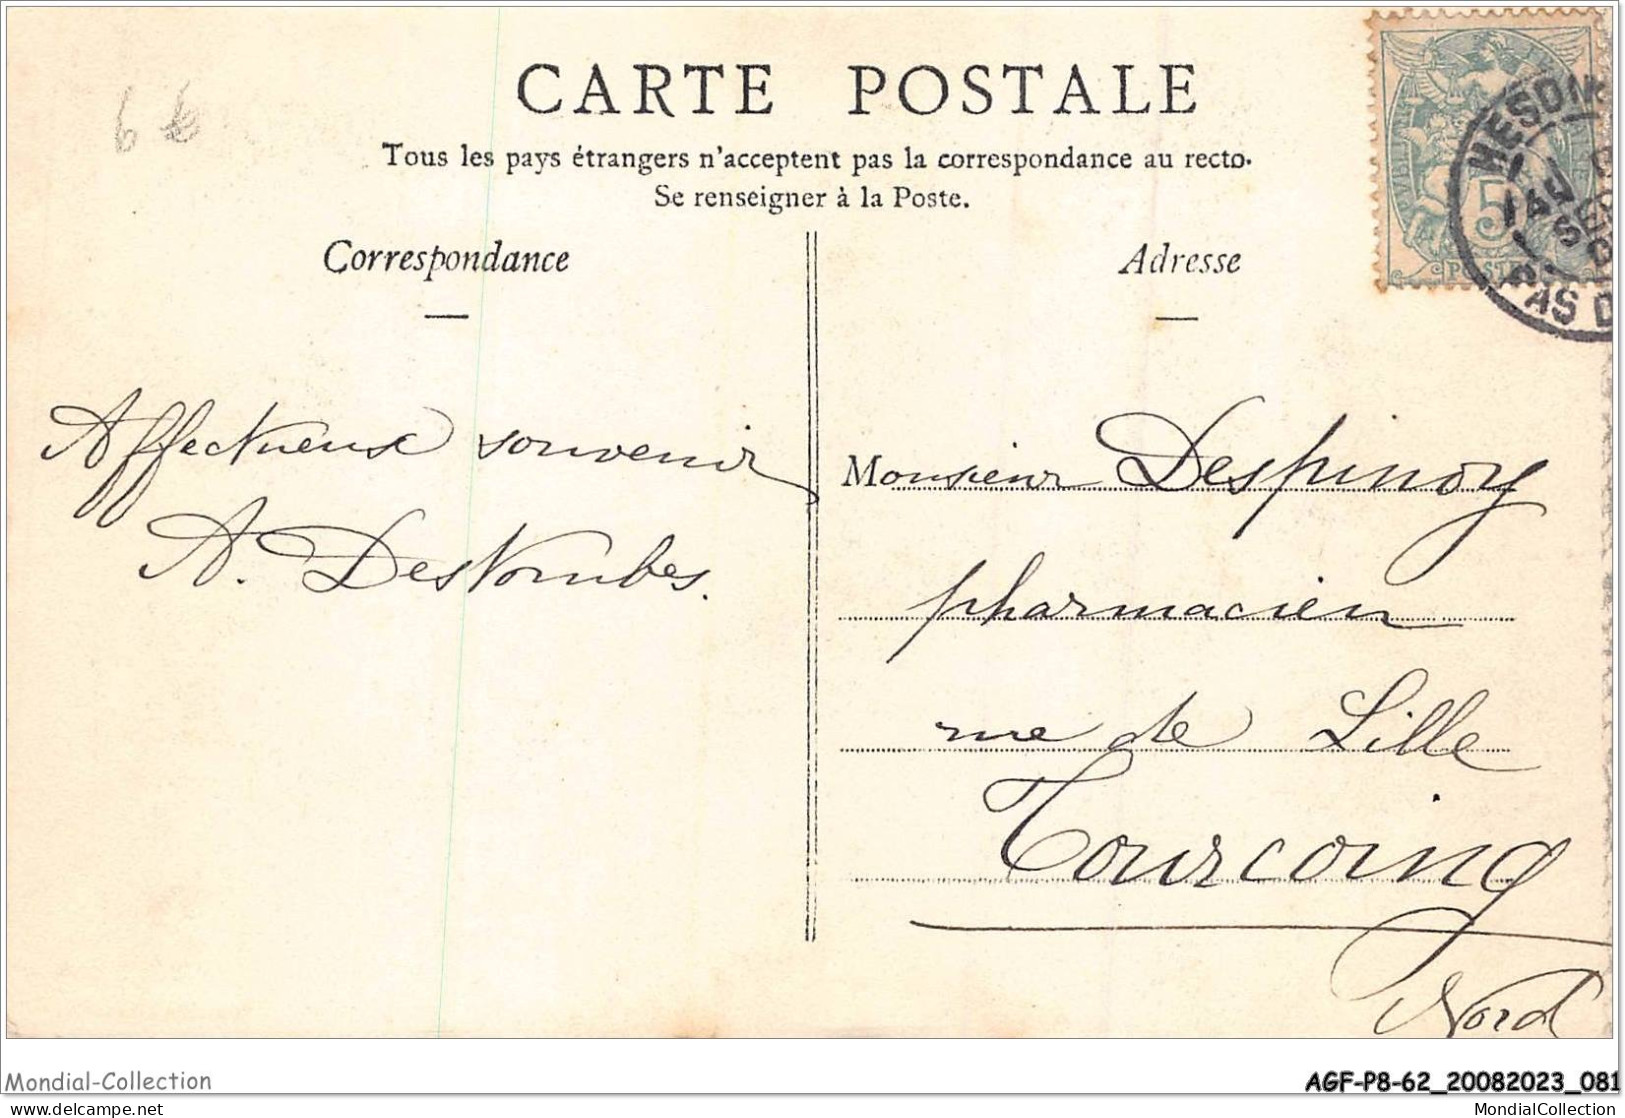 CARTE POSTALE
Tous les pays étrangers n'acceptent pas la correspondance au recto.
Se renseigner à la Poste.
Correspondance
Adresse
6 €
5
POSTES
HESDIN
PAS D
Affectueux souvenir
A. Destombes.
Monsieur Despinoy
pharmacien
rue de Lille
Tourcoing
Nord
Mondial-Collection
AGF-P8-62_20082023_081
delcampe.net
MondialCollection